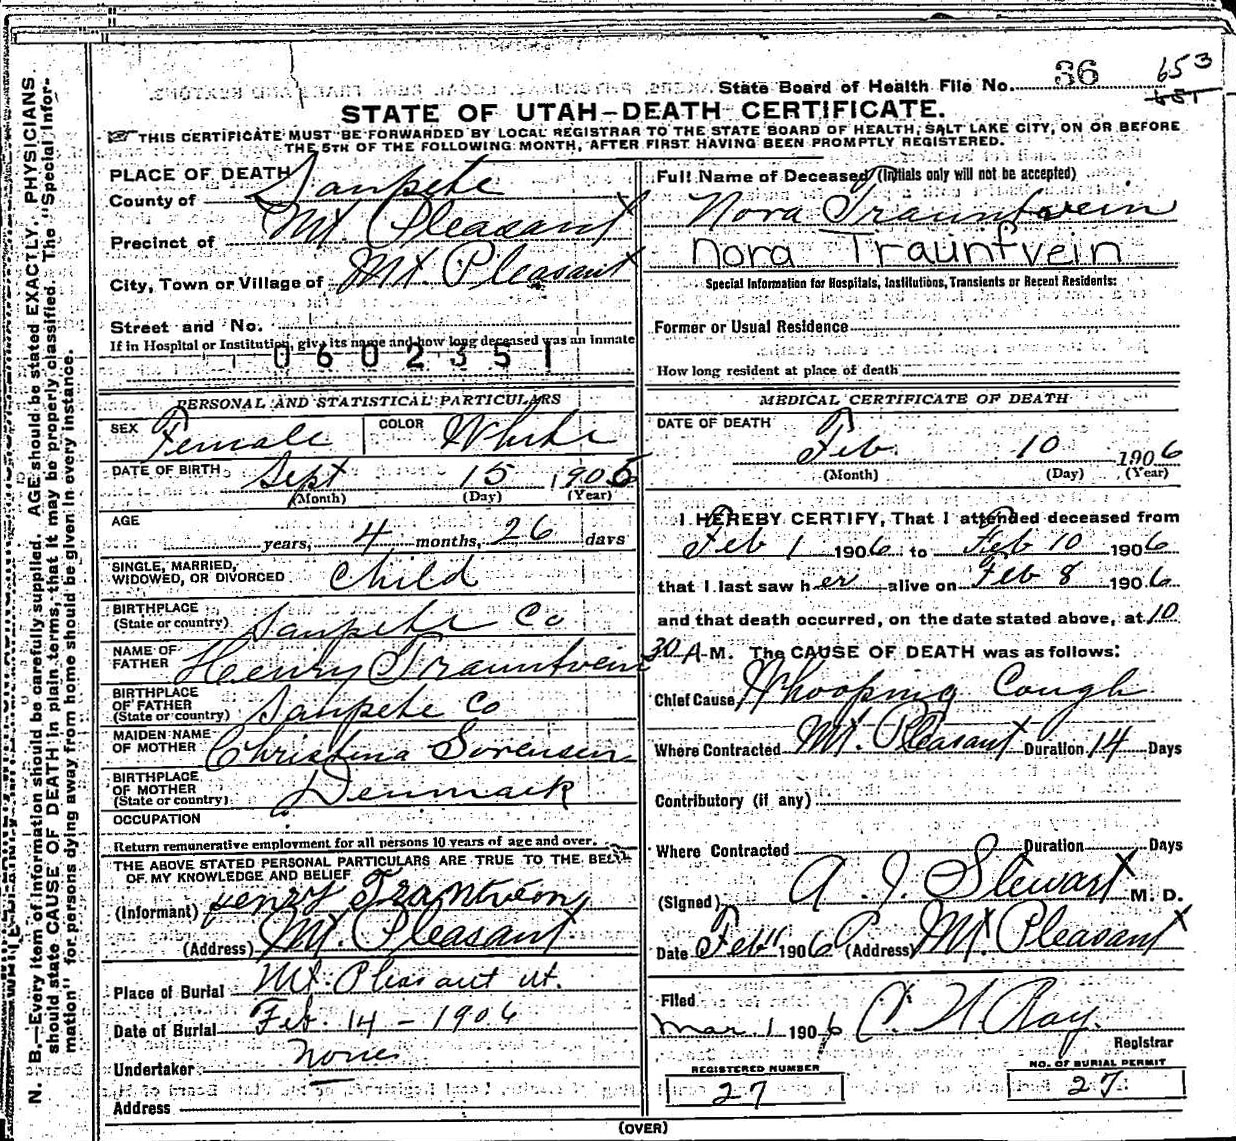 State Board of Health File No. 36 653
651
STATE OF UTAH–DEATH CERTIFICATE.
THIS CERTIFICATE MUST BE FORWARDED BY LOCAL REGISTRAR TO THE STATE BOARD OF HEALTH, SALT LAKE CITY, ON OR BEFORE
THE 5TH OF THE FOLLOWING MONTH, AFTER FIRST HAVING BEEN PROMPTLY REGISTERED.
N. B.—Every item of information should be carefully supplied. AGE should be stated EXACTLY. PHYSICIANS
should state CAUSE OF DEATH in plain terms, that it may be properly classified. The "Special Infor-
mation" for persons dying away from home should be given in every instance.
PLACE OF DEATH
County of Sanpete
Precinct of Mt. Pleasant
City, Town or Village of Mt. Pleasant
Street and No.
If in Hospital or Institution, give its name and how long deceased was an inmate
0602351
PERSONAL AND STATISTICAL PARTICULARS
SEX Female COLOR White
DATE OF BIRTH Sept 15 1905
(Month) (Day) (Year)
AGE
years, 4 months, 26 days
SINGLE, MARRIED,
WIDOWED, OR DIVORCED Child
BIRTHPLACE
(State or country) Sanpete Co
NAME OF
FATHER Henry Trauntvein
BIRTHPLACE
OF FATHER
(State or country) Sanpete Co
MAIDEN NAME
OF MOTHER Christina Sorensen
BIRTHPLACE
OF MOTHER
(State or country) Denmark
OCCUPATION
Return remunerative employment for all persons 10 years of age and over.
THE ABOVE STATED PERSONAL PARTICULARS ARE TRUE TO THE BEST
OF MY KNOWLEDGE AND BELIEF
(Informant) Henry Trantveein
(Address) Mt. Pleasant
Place of Burial Mt. Pleasant Ut.
Date of Burial Feb. 14 – 1906
Undertaker None
Address
Full Name of Deceased (Initials only will not be accepted)
Nora Trauntvein
Nora Trauntvein
Special Information for Hospitals, Institutions, Transients or Recent Residents:
Former or Usual Residence
How long resident at place of death
MEDICAL CERTIFICATE OF DEATH
DATE OF DEATH
Feb. 10 1906
(Month) (Day) (Year)
I HEREBY CERTIFY, That I attended deceased from
Feb 1 1906 to Feb 10 1906
that I last saw her alive on Feb 8 1906
and that death occurred, on the date stated above, at 10
30 A-M. The CAUSE OF DEATH was as follows:
Chief Cause Whooping Cough
Where Contracted Mt. Pleasant Duration 14 Days
Contributory (if any)
Where Contracted Duration Days
(Signed) A. J. Stewart M. D.
Date Feb 1906 (Address) Mt Pleasant
Filed
Mar. 1 1906 C. N. Ray.
Registrar
REGISTERED NUMBER
27
NO. OF BURIAL PERMIT
27
(OVER)